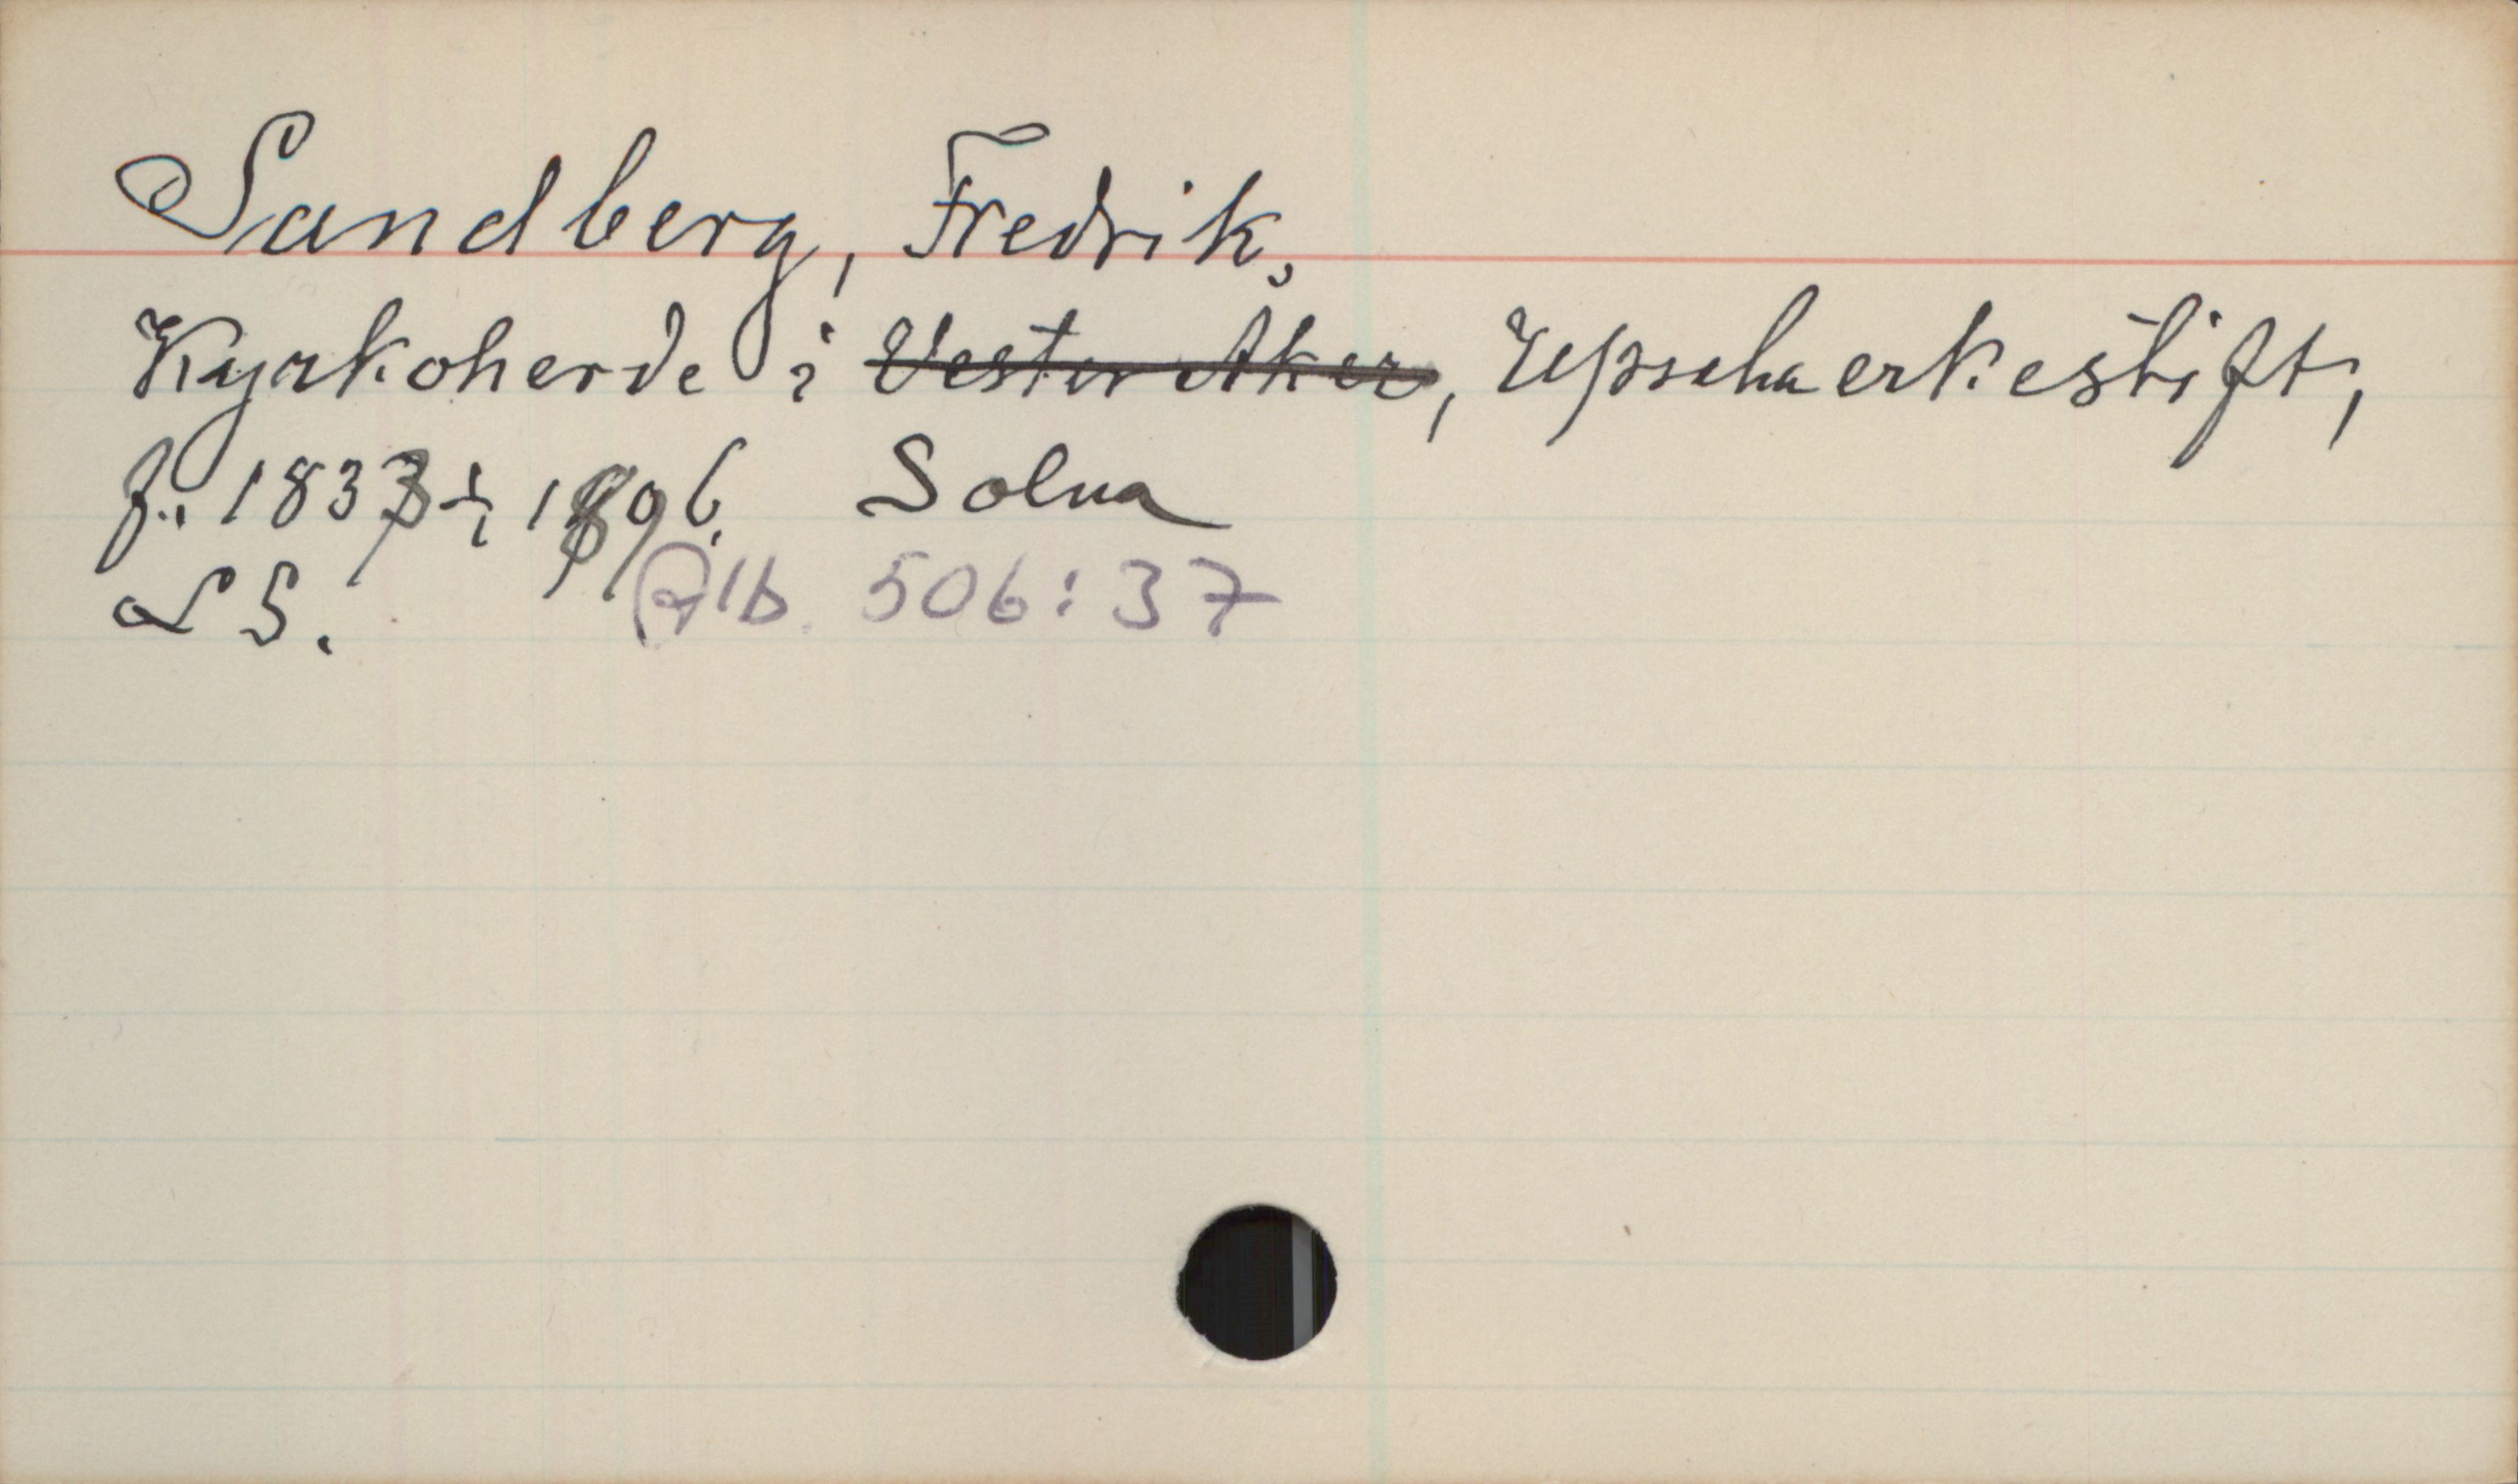 Sandberg, Fredrik,
Kyrkoherde i Vester Aker, Upsala erkestift,
f. 1833 † 1896. Solna
L S.
Alb. 506:37